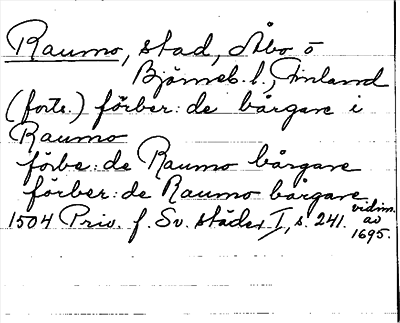 Raumo, stad, Åbo o
Björneb. l., Finland
(forts.) förber: de bårgare i
Raumo
förbe: de Raumo bårgare
förber: de Raumo bårgare
1504 Priv. f. Sv. städer I, s. 241. vidim.
av
1695.